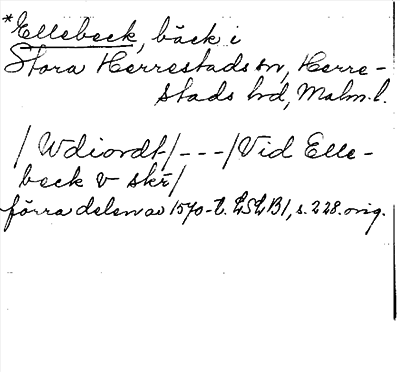 *Ellebeck, bäck i
Stora Herrestads sn, Herre-
stads hd, Malm. l.
/ Wdiordt / --- / Vid Elle-
beck v skr /
förra delen av 1570-t. LSLB1, s. 228. orig.